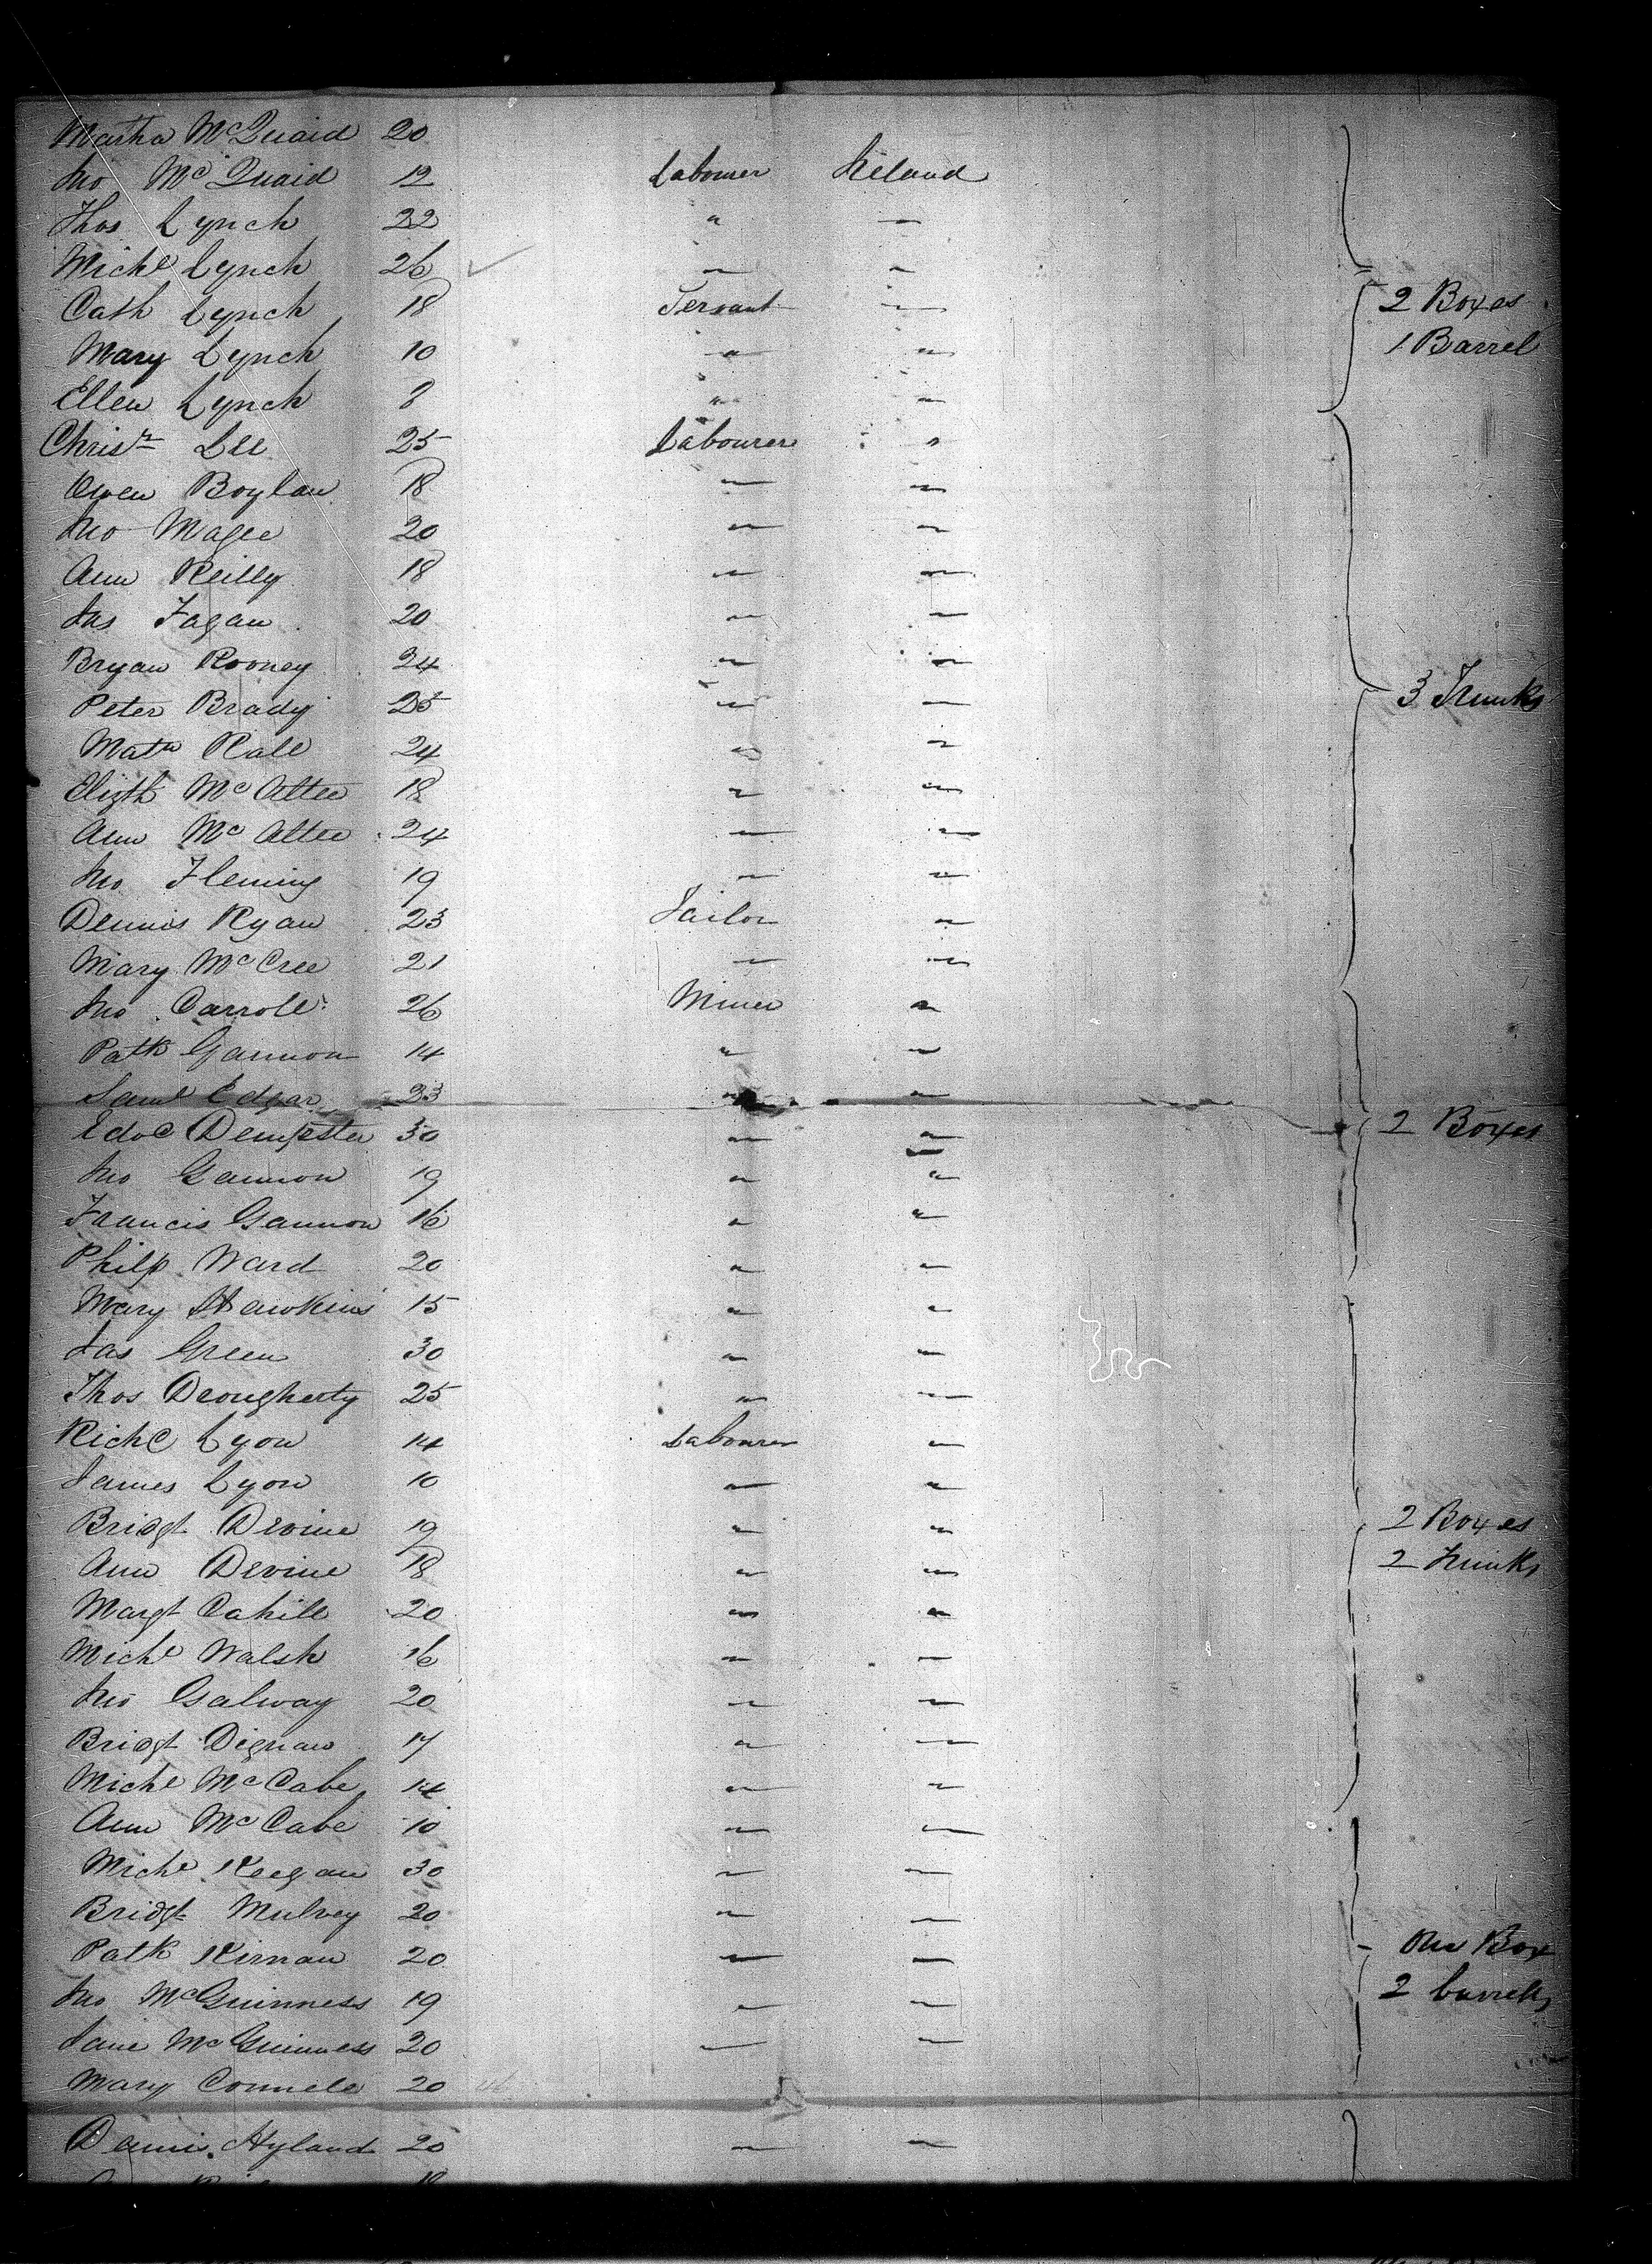 Martha McQuaid 20
Jno McQuaid 12 Labourer Ireland
Thos Lynch 22 " —
Michl Lynch 26 — —
Cath Lynch 18 Servant — 2 Boxes
Mary Lynch 10 " " 1 Barrel
Ellen Lynch 8 " —
Christr Lee 25 Labourer "
Owen Boylan 18 — —
Jno Magee 20 — —
Ann Reilly 18 — —
Jas Fagan 20 — —
Bryan Rooney 24 — —
Peter Brady 25 — — 3 Trunks
Matw Rall 24 " "
Elizth McAttee 18 " —
Ann McAttee 24 — —
Jno Fleming 19 — —
Dennis Ryan 23 Tailor —
Mary McCree 21 — —
Jno Carroll 26 Miner "
Patk Gannon 14 " —
Saml Edgar 23 " —
Edwd Dempster 30 — — 2 Boxes
Jno Gannon 19 " "
Francis Gannon 16 " "
Philp Ward 20 " —
Mary Hawkins 15 " "
Jas Green 30 — —
Thos Dougherty 25 " —
Richd Lyon 14 Labourer —
James Lyon 10 — "
Bridgt Devine 19 " " 2 Boxes
Ann Devine 18 " — 2 Trunks
Margt Cahill 20 " "
Michl Walsh 16 — —
Jno Galway 20 — —
Bridgt Dignan 17 " —
Michl McCabe 14 — —
Ann McCabe 10 — —
Michl Keegan 30 — —
Bridgt Mulvey 20 — —
Patk Kirnan 20 — — One Box
Jno McGuinness 19 — — 2 barrels
Jane McGuinness 20 — —
Mary Connell 20
Dennis Hyland 20 — —